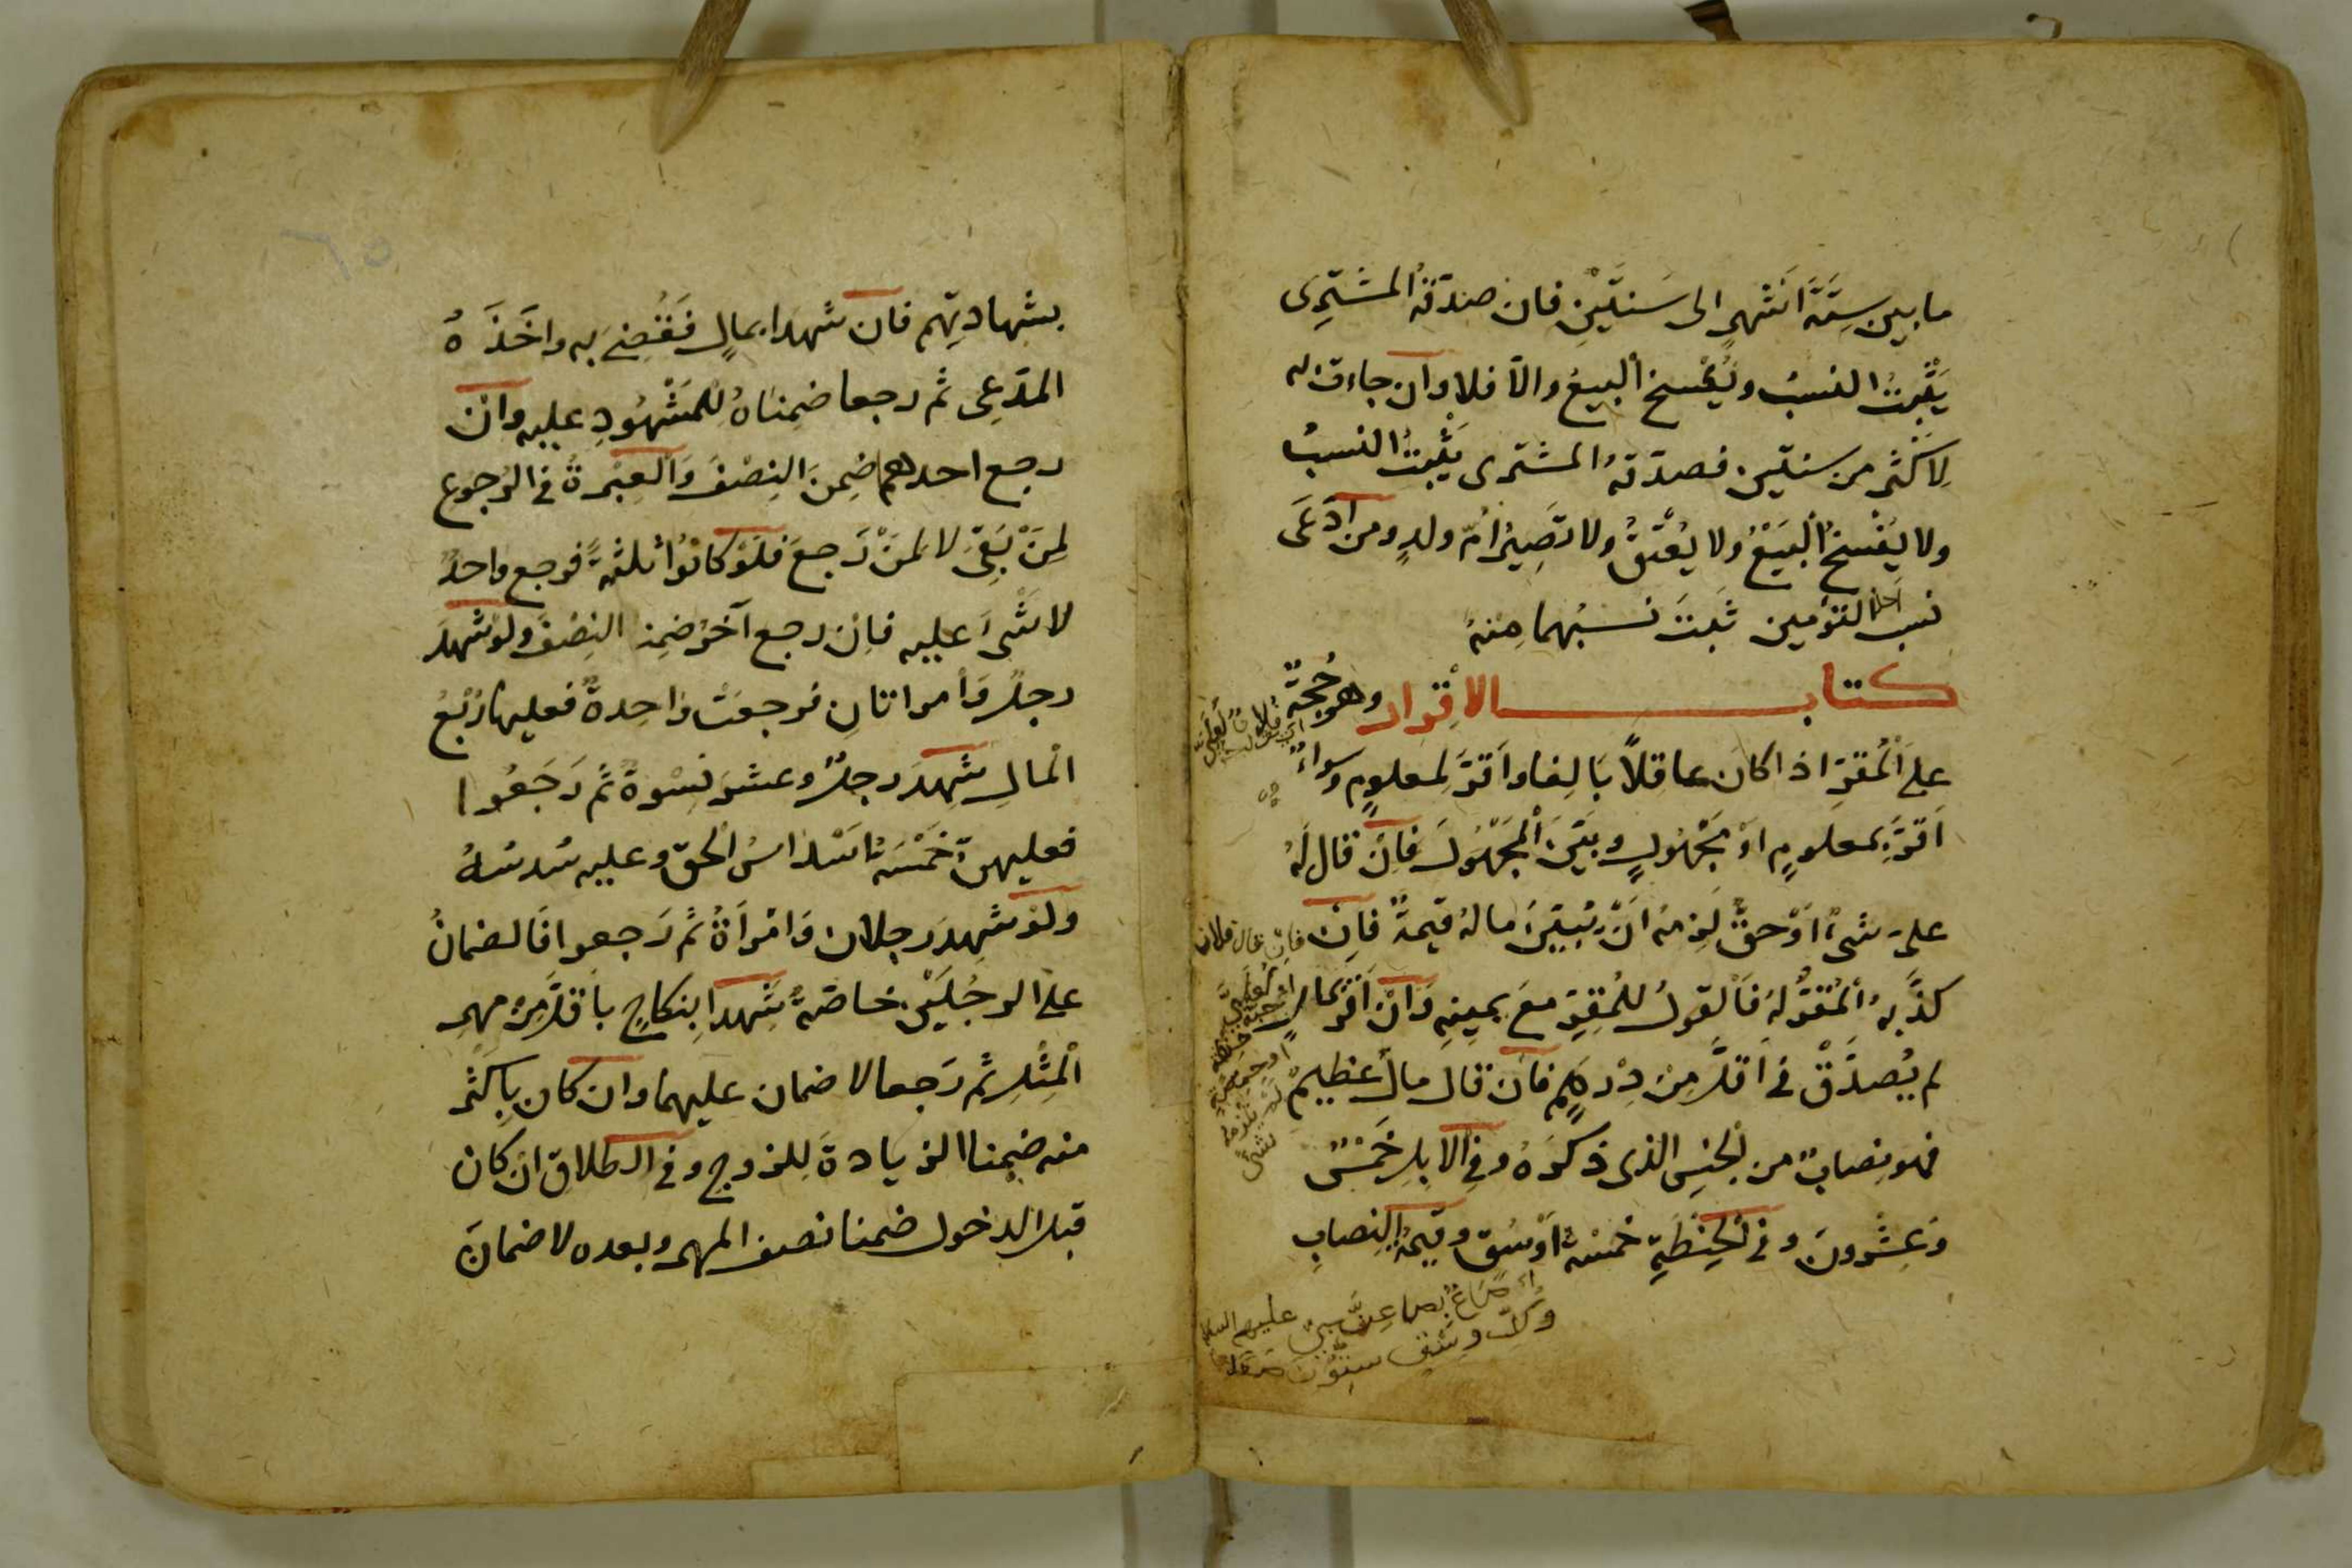 ما بين سِتَّةَ اَشْهرٍ الى سَنتَيْنِ فان صدّقهُ المشترِى
يَثْبتُ النسبُ ويُفْسخ البيعُ والاّ فلا وان جاءت به
لِاَكثرَ من سنتين فصدّقهُ المشترى يثْبتُ النسبُ
ولا يفْسخُ البَيْعُ ولا يُعْتقُ ولا تَصِيرُ اُمّ ولدٍ ومن اَدّعَى
نسب احد التوءمين ثَبتَ نسبُهما مِنْهُ
كتاب الاِقرار وهو حُجةٌ
على اَلْمُقرِّ اذا كان عاقِلاً بَالِغا واَقرَّ لمعلومٍ وسواءٌ
اَقرَّ بمعلومٍ اوْ مَجْهُولٍ وبَيَّنَ اَلْمَجْهُولَ فَاِنْ قال لَهُ
علىَّ شىءٌ اَوْ حقٌّ لَزِمهُ اَنْ يُبَيّنَ مالهُ قيمةٌ فاِن
كذّبهُ اَلْمُقَرُّ لهُ فَالقولُ للمُقِرِّ معَ يمينِهِ وَاِنْ اَقرّ بمالٍ
لم يُصدَّقْ فى اَقلَّ مِنْ دِرْهَمٍ فان قال مالٌ عظيمٌ
فهو نِصابٌ من الجنسِ الذى ذكرَهُ وفى الاِبلِ خَمْسٌ
وَعِشْرونَ وفى الحِنْطَةِ خمسَة اَوْسُقٍ وقيمةُ النِصابِ
وكلّ وسْقٍ ستّونَ
بشهادتِهم فان شهدا بمالٍ فَقُضِىَ به واخَذَهُ
المدّعِى ثم رجعا ضمِناهُ للمَشْهُودِ عليه وان
رجع احدهما ضِمنَ النِصْفَ وَالعِبْرةُ فى الرجوع
لِمَنْ بَقِىَ لا لمَنْ رَجعَ فلوْ كانُوا ثلثةً فرجع واحدٌ
لا شَىْءَ عليه فاِن رجع آخرُ ضمِنا النِصْفَ ولوْ شهدَ
رجلٌ وَامراتانِ فرجعَتْ واحِدةٌ فعليها رُبْعُ
اَلمالِ شهِدَ رجلٌ وعشر نِسْوةٌ ثُم رَجَعُوا
فعليهنّ خَمْسَةُ اَسْداسُ الحقّ وعليه سُدسُهُ
ولوْ شهِدَ رجلان وَامْراَةٌ ثُم رَجعوا فَالضمانُ
على الرجُلَيْنِ خاصّةً شَهِدا بِنكاحٍ باَقلَّ مِنْ مهرِ
اَلْمِثْلِ ثُم رَجعا لا ضمان عليهما وان كان بِاَكثر
منه ضمِنا الزيادةَ للزوجِ وفى الطلاق ان كان
قبل الدخول ضمنا نصف المهر وبعده لا ضمانَ